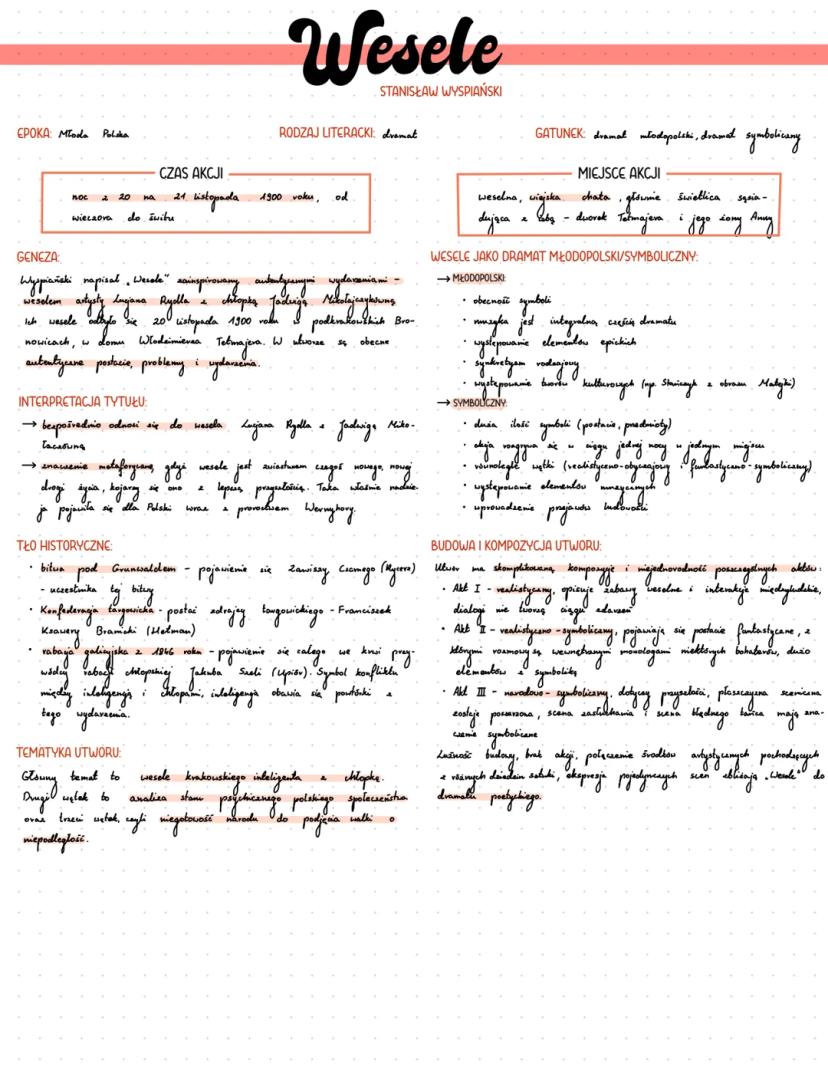 Wesele
STANISŁAW WYSPIAŃSKI
EPOKA: Młoda Polska
RODZAJ LITERACKI: dramat
GATUNEK: dramat młodopolski, dramat symboliczny
CZAS AKCJI
noc z 20 na 21 listopada 1900 roku, od
wieczora do świtu
MIEJSCE AKCJI
weselna, wiejska chata, głównie świetlica sąsia-
dująca z izbą – dworek Tetmajera i jego żony Anny
GENEZA:
Wyspiański napisał „Wesele" zainspirowany autentycznymi wydarzeniami –
weselem artysty Lucjana Rydla z chłopką Jadwigą Mikołajczykówną
Ich wesele odbyło się 20 listopada 1900 roku w podkrakowskich Bro-
nowicach, w domu Włodzimierza Tetmajera. W utworze są obecne
autentyczne postacie, problemy i wydarzenia.
INTERPRETACJA TYTUŁU:
→ bezpośrednio odnosi się do wesela Lucjana Rydla z Jadwigą Miko-
łaczówną
→ znaczenie metaforyczne, gdyż wesele jest zwiastunem czegoś nowego, nowej
drogi życia, kojarzy się ono z lepszą przyszłością. Taka właśnie nadzie-
ja pojawiła się dla Polski wraz z proroctwem Wernyhory.
TŁO HISTORYCZNE:
• bitwa pod Grunwaldem – pojawienie się Zawiszy Czarnego (Rycerz)
– uczestnika tej bitwy
• Konfederacja targowicka – postać zdrajcy targowickiego – Franciszek
Ksawery Branicki (Hetman)
• rabacja galicyjska z 1846 roku – pojawienie się całego we krwi przy-
wódcy rabacji chłopskiej Jakuba Szeli (Upiór). Symbol konfliktu
między inteligencją i chłopami, inteligencja obawia się powtórki z
tego wydarzenia.
TEMATYKA UTWORU:
Główny temat to wesele krakowskiego inteligenta z chłopką.
Drugi wątek to analiza stanu psychicznego polskiego społeczeństwa
oraz trzeci wątek, czyli niegotowość narodu do podjęcia walki o
niepodległość.
WESELE JAKO DRAMAT MŁODOPOLSKI/SYMBOLICZNY:
→ MŁODOPOLSKI:
• obecność symboli
• muzyka jest integralną częścią dramatu
• występowanie elementów epickich
• synkretyzm rodzajowy
• występowanie tworów kulturowych (np. Stańczyk z obrazu Matejki)
→ SYMBOLICZNY:
• duża ilość symboli (postacie, przedmioty)
• akcja rozgrywa się w ciągu jednej nocy w jednym miejscu
• równoległe wątki (realistyczno-obyczajowy i fantastyczno-symboliczny)
• występowanie elementów muzycznych
• wprowadzenie przejawów ludowości
BUDOWA I KOMPOZYCJA UTWORU:
Utwór ma skomplikowaną kompozycję i niejednorodność poszczególnych aktów:
• Akt I – realistyczny, opisuje zabawy weselne i interakcje międzyludzkie,
dialogi nie tworzą ciągu zdarzeń
• Akt II – realistyczno-symboliczny, pojawiają się postacie fantastyczne, z
którymi rozmowy są wewnętrznymi monologami niektórych bohaterów, dużo
elementów z symboliką
• Akt III – narodowo-symboliczny, dotyczy przyszłości, płaszczyzna sceniczna
zostaje poszerzona, scena zasłuchania i scena błędnego tańca mają zna-
czenie symboliczne
Luźność budowy, brak akcji, połączenie środków artystycznych pochodzących
z różnych dziedzin sztuki, ekspresja pojedynczych scen zbliżają „Wesele" do
dramatu poetyckiego.